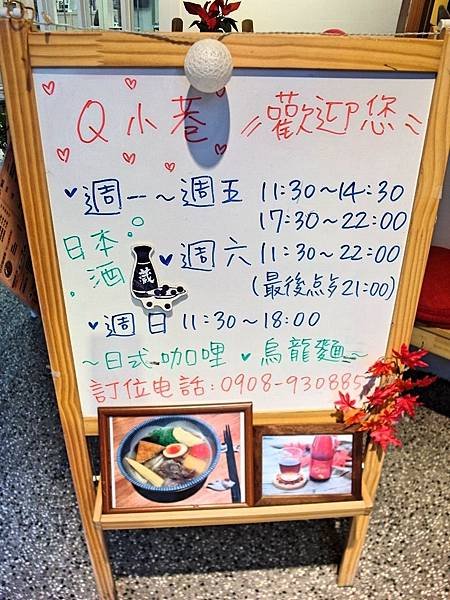 Q小巷 歡迎您
週一～週五 11:30～14:30
17:30～22:00
日本酒
藏
週六 11:30～22:00
(最後点多21:00)
週日 11:30～18:00
～日式咖哩 ♥ 烏龍麵～
訂位电話:0908-930885